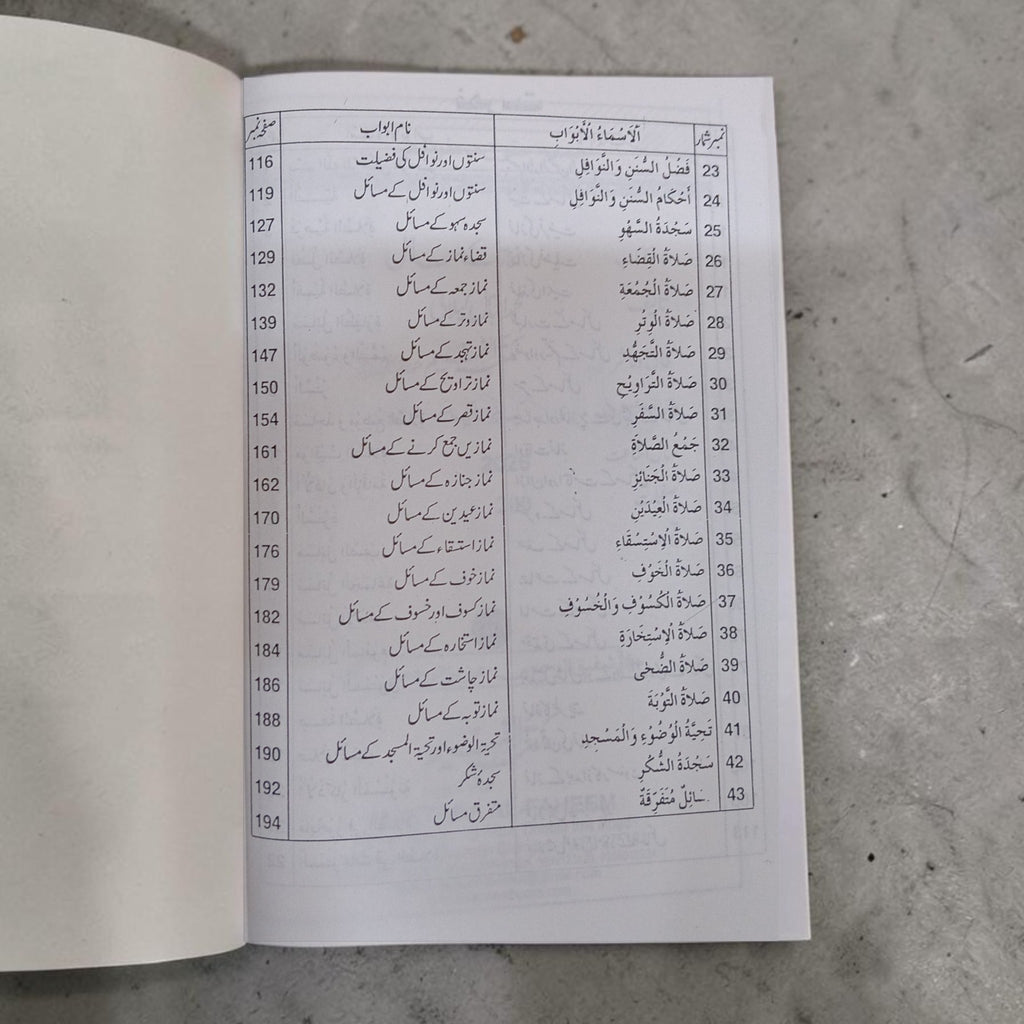 نمبر شمار اَلْاَسْمَاءُ الْأَبْوَابِ نام ابواب صفحہ نمبر
23 فَضْلُ السُّنَنِ وَالنَّوَافِلِ سنتوں اور نوافل کی فضیلت 116
24 أَحْكَامُ السُّنَنِ وَالنَّوَافِلِ سنتوں اور نوافل کے مسائل 119
25 سَجْدَةُ السَّهْوِ سجدہ سہو کے مسائل 127
26 صَلاَةُ الْقِضَاءِ قضاء نماز کے مسائل 129
27 صَلاَةُ الْجُمُعَةِ نماز جمعہ کے مسائل 132
28 صَلاَةُ الْوِتْرِ نماز وتر کے مسائل 139
29 صَلاَةُ التَّهَجُّدِ نماز تہجد کے مسائل 147
30 صَلاَةُ التَّرَاوِيْحِ نماز تراویح کے مسائل 150
31 صَلاَةُ السَّفَرِ نماز قصر کے مسائل 154
32 جَمْعُ الصَّلاَةِ نمازیں جمع کرنے کے مسائل 161
33 صَلاَةُ الْجَنَائِزِ نماز جنازہ کے مسائل 162
34 صَلاَةُ الْعِيْدَيْنِ نماز عیدین کے مسائل 170
35 صَلاَةُ الْاِسْتِسْقَاءِ نماز استسقاء کے مسائل 176
36 صَلاَةُ الْخَوْفِ نماز خوف کے مسائل 179
37 صَلاَةُ الْكُسُوْفِ وَالْخُسُوْفِ نماز کسوف اور خسوف کے مسائل 182
38 صَلاَةُ الْاِسْتِخَارَةِ نماز استخارہ کے مسائل 184
39 صَلاَةُ الضُّحٰى نماز چاشت کے مسائل 186
40 صَلاَةُ التَّوْبَةِ نماز توبہ کے مسائل 188
41 تَحِيَّةُ الْوُضُوْءِ وَالْمَسْجِدِ تحیۃ الوضوء اور تحیۃ المسجد کے مسائل 190
42 سَجْدَةُ الشُّكْرِ سجدۂ شکر 192
43 سَائِلٌ مُتَفَرِّقَةٌ متفرق مسائل 194